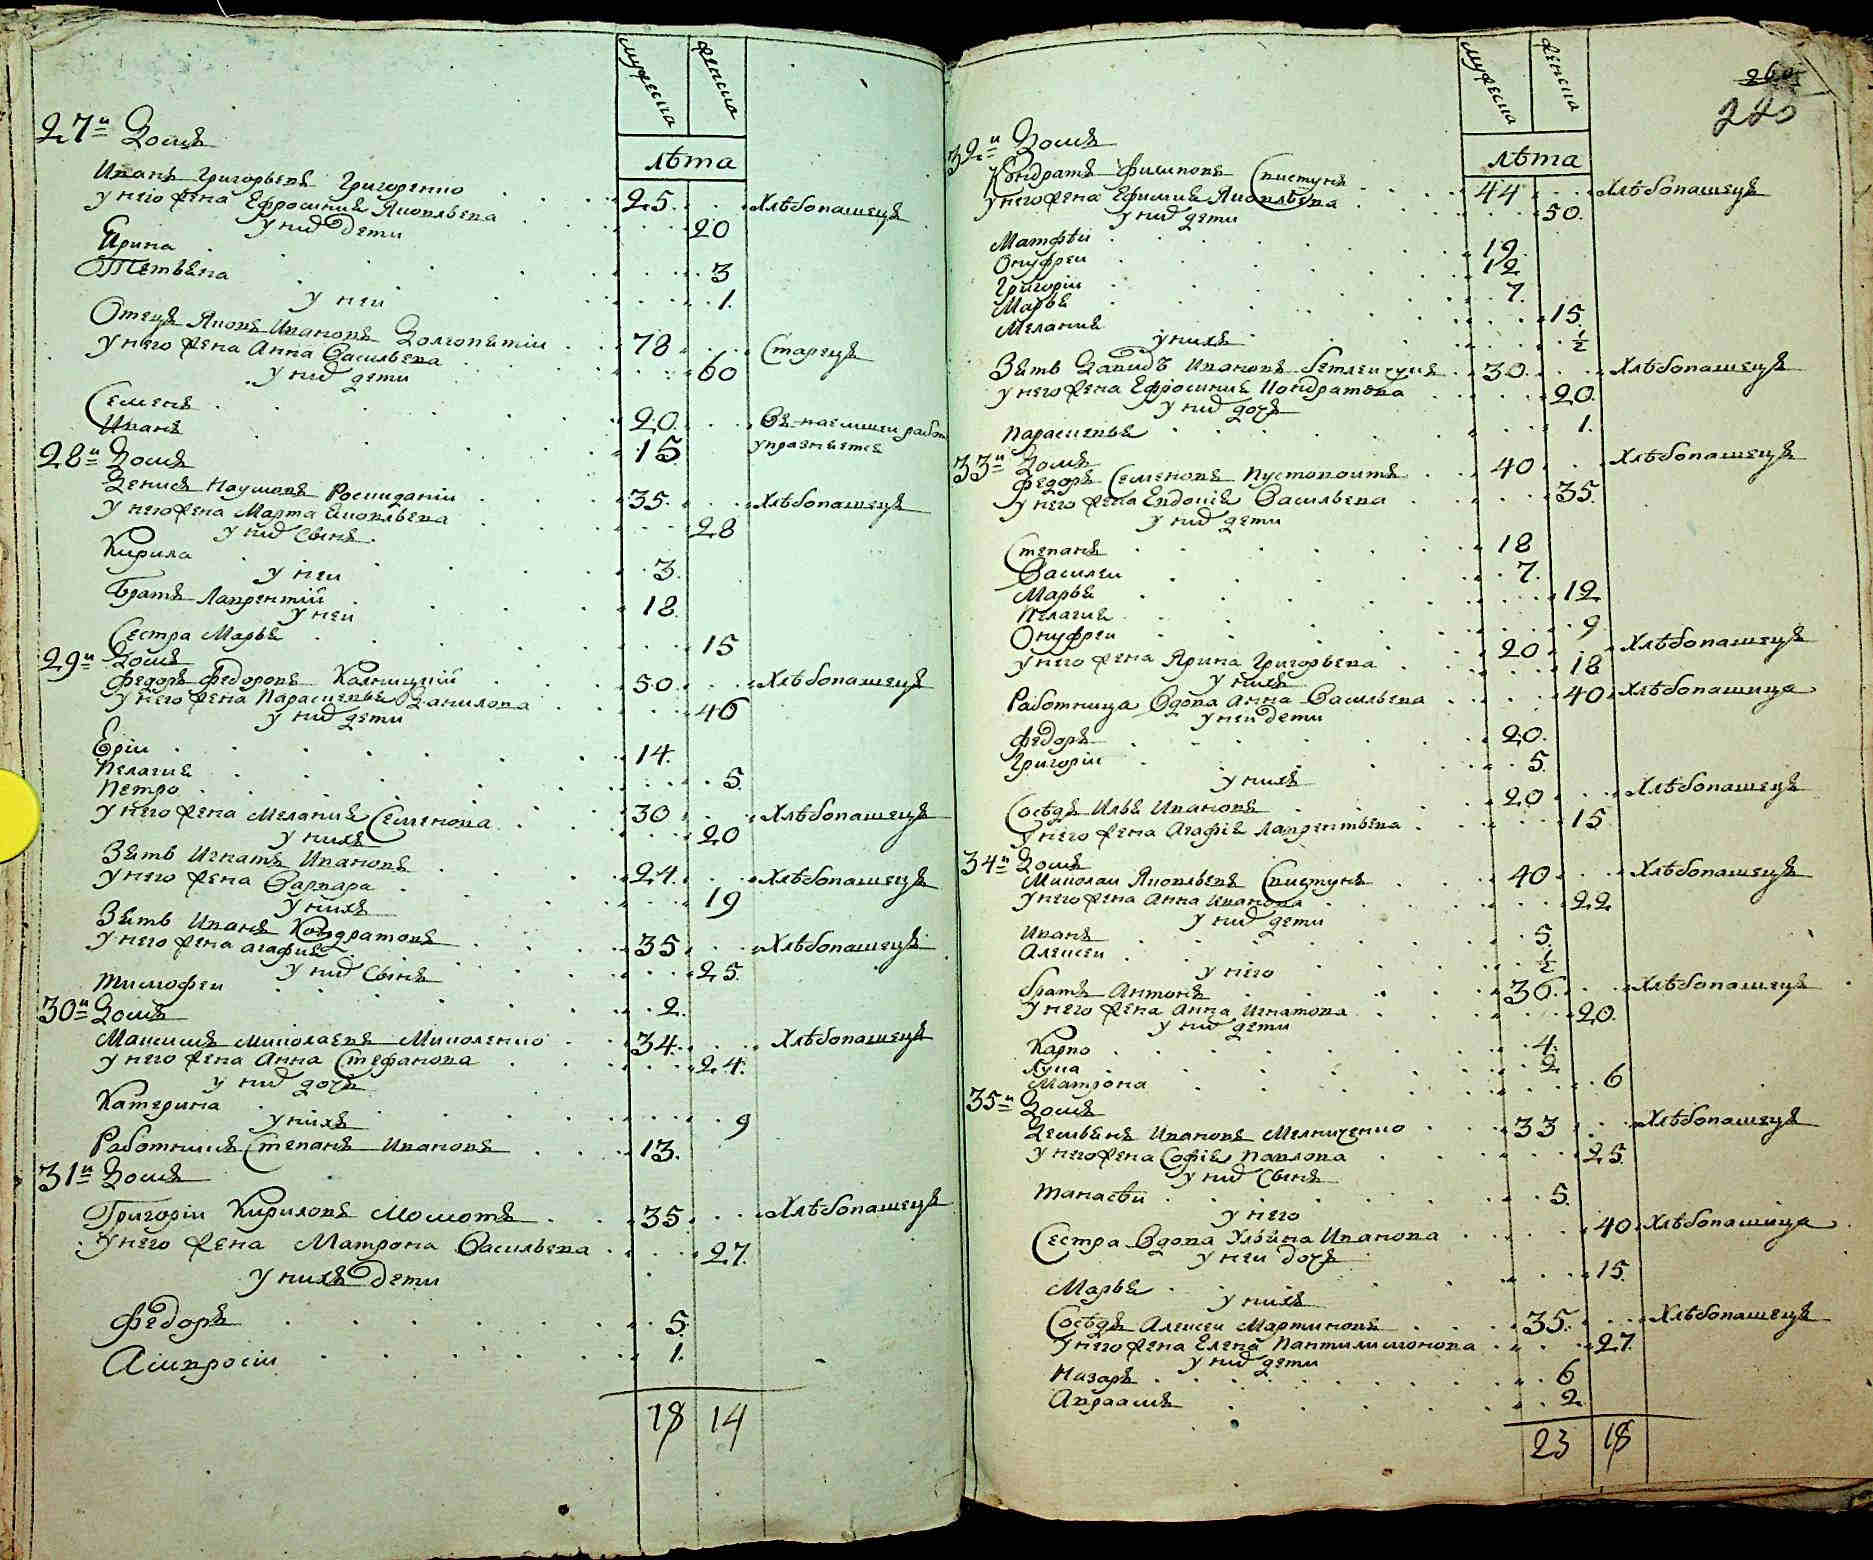 мужеска женска
лѣта
27й Домъ
Иванъ Григорьевъ Григоренко 25 Хлѣбопашецъ
у него жена Ефросиния Яковлева 20
у них дети
Ирина 3
Тетьяна 1
у неи
Отецъ Яковъ Ивановъ Долгопятій 78 Старецъ
у него жена Анна Васильева 60
у них дети
Семенъ 20 Въ наемшеи работ
Иванъ 15 упразняется
28й Домъ
Денисъ Наумовъ Роскиданій 35 Хлѣбопашецъ
у него жена Марта Яковлева 28
у них Сынъ
Кирила 3
у неи
Братъ Лаврентій 18
у неи
Сестра Марья 15
29й Домъ
Федоръ Федоровъ Калницкій 50 Хлѣбопашецъ
у него жена Парасцевья Данилова 46
у них дети
Ерій 14
Пелагия 5
Петро 30 Хлѣбопашецъ
у него жена Мелания Семенова 20
у нихъ
Зять Игнатъ Ивановъ 24 Хлѣбопашецъ
у него жена Варвара 19
у нихъ
Зять Иванъ Кондратовъ 35 Хлѣбопашецъ
у него жена Агафия 25
у них Сынъ
Тимофеи 2
30й Домъ
Максимъ Миколаевъ Миколенко 34 Хлѣбопашецъ
у него жена Анна Стефанова 24
у них дочь
Катерина 9
у нихъ
Работникъ Степанъ Ивановъ 13
31й Домъ
Григоріи Кириловъ Момотъ 35 Хлѣбопашецъ
у него жена Матрона Васильева 27
у нихъ дети
Федоръ 5
Амвросіи 1
18 14
260
220
мужеска женска
лѣта
32й Домъ
Кондратъ Филиповъ Свистунъ 44 Хлѣбопашецъ
у него жена Ефимия Яковлева 50
у них дети
Матфѣи 19
Онуфреи 12
Григоріи 7
Марья 15
Мелания ½
у нихъ
Зять Давидъ Ивановъ 30 Хлѣбопашецъ
у него жена Ефросиния Кондратова 20
у них дочь
Парасцевья 1
33й Домъ
Федоръ Семеновъ Пустовоитъ 40 Хлѣбопашецъ
у него жена Евдокия Васильева 35
у них дети
Степанъ 18
Василеи 7
Марья 12
Пелагия 9
Онуфреи 20 Хлѣбопашецъ
у него жена Ярина Григорьева 18
у нихъ
Работница Вдова Анна Васильева 40 Хлѣбопашица
у неи дети
Федоръ 20
Григоріи 5
у нихъ
Сосѣдъ Илья Ивановъ 20 Хлѣбопашецъ
у него жена Агафия Лаврентьева 15
34й Домъ
Миколаи Яковлевъ Свистунъ 40 Хлѣбопашецъ
у него жена Анна Иванова 22
у них дети
Иванъ 5
Алексеи ½
у него
братъ Антонъ 36 Хлѣбопашецъ
у него жена Анна Игнатова 20
у них дети
Карпо 4
Лука 2
Матрона 6
35й Домъ
Демьянъ Ивановъ Мелниченко 33 Хлѣбопашецъ
у него жена София Павлова 25
у них Сынъ
Танасѣи 5
у него
Сестра Вдова Ульяна Иванова 40 Хлѣбопашица
у неи дочь
Марья 15
у нихъ
Сосѣдъ Алексеи Мартиновъ 35 Хлѣбопашецъ
у него жена Елена Пантилимонова 27
у них дети
Назаръ 6
Авраамъ 2
23 18